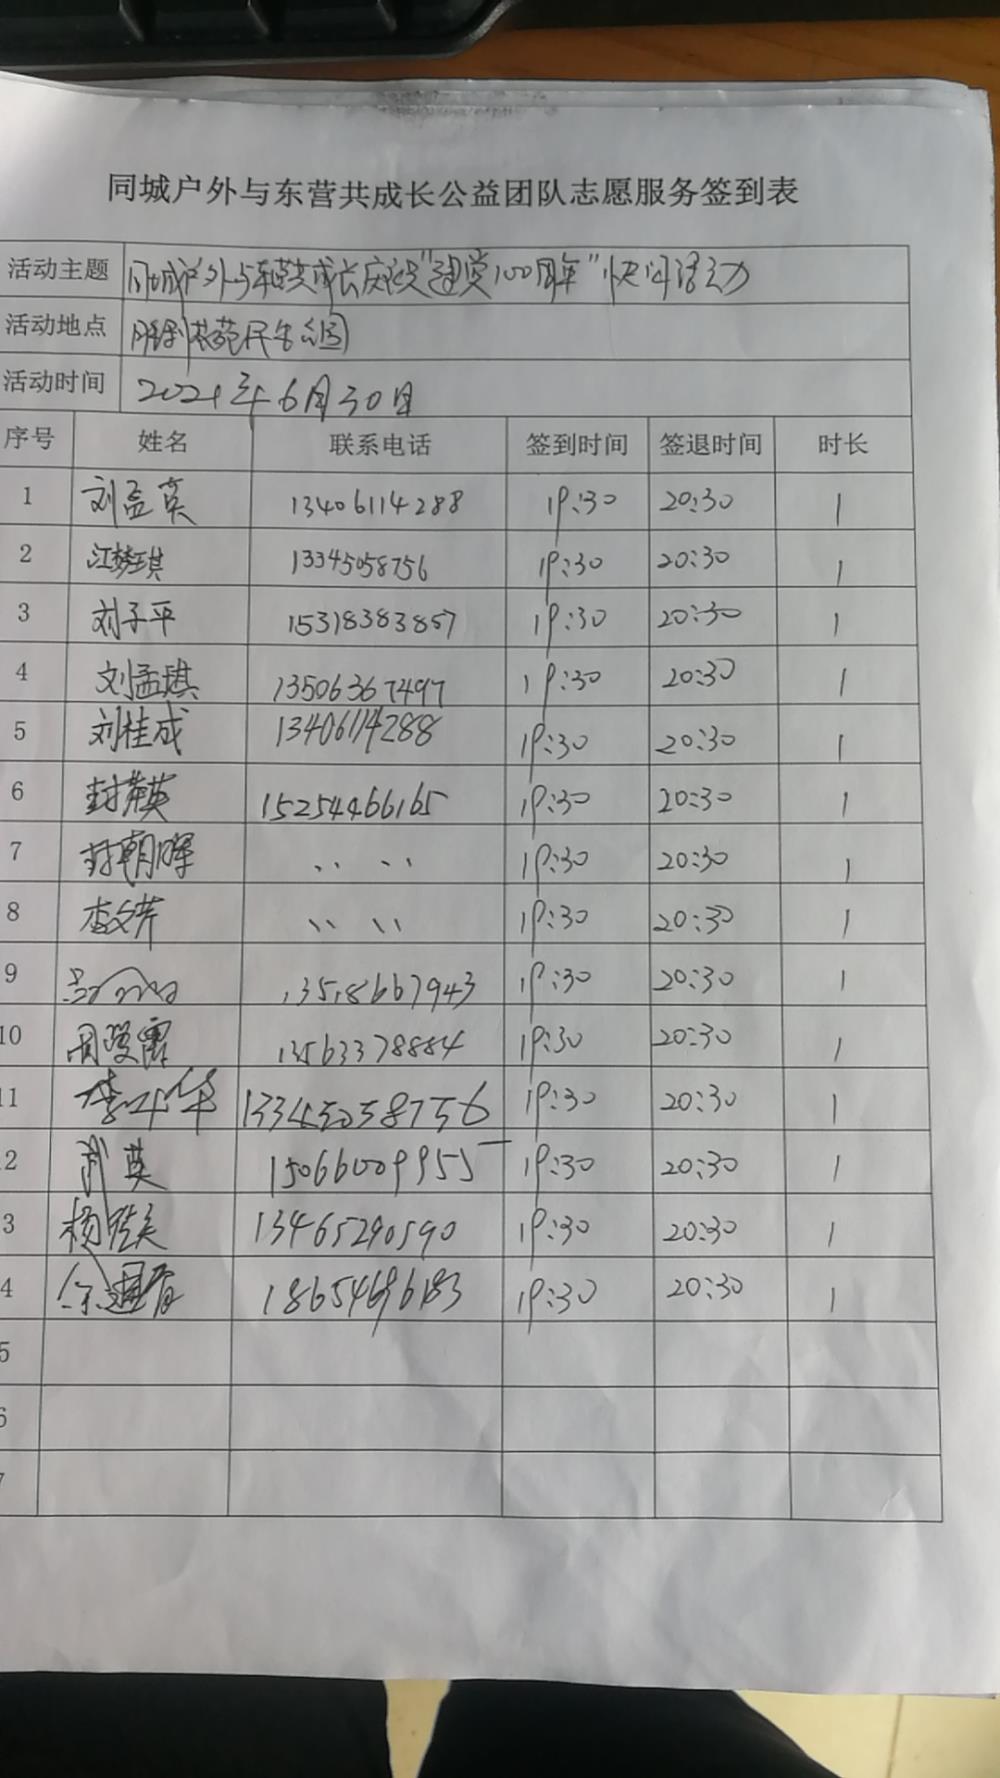 同城户外与东营共成长公益团队志愿服务签到表
活动主题 同城户外与东营共成长庆祝"建党100周年"快闪活动
活动地点 胜利 苑民生公园
活动时间 2021年6月30日
序号 姓名 联系电话 签到时间 签退时间 时长
1 刘孟英 13406114288 19:30 20:30 1
2 江梦琪 13345058756 19:30 20:30 1
3 刘子平 15318383857 19:30 20:30 1
4 刘孟琪 13506367497 19:30 20:30 1
5 刘桂成 13406114288 19:30 20:30 1
6 封英 15254466165 19:30 20:30 1
7 封朝晖 〃 〃 19:30 20:30 1
8 李文芹 〃 〃 19:30 20:30 1
9 13518667943 19:30 20:30 1
10 周 霞 13563378884 19:30 20:30 1
11 李华 13345058756 19:30 20:30 1
2 武英 15066009955 19:30 20:30 1
3 杨 13465290590 19:30 20:30 1
4 徐 19:30 20:30 1
5
6
7